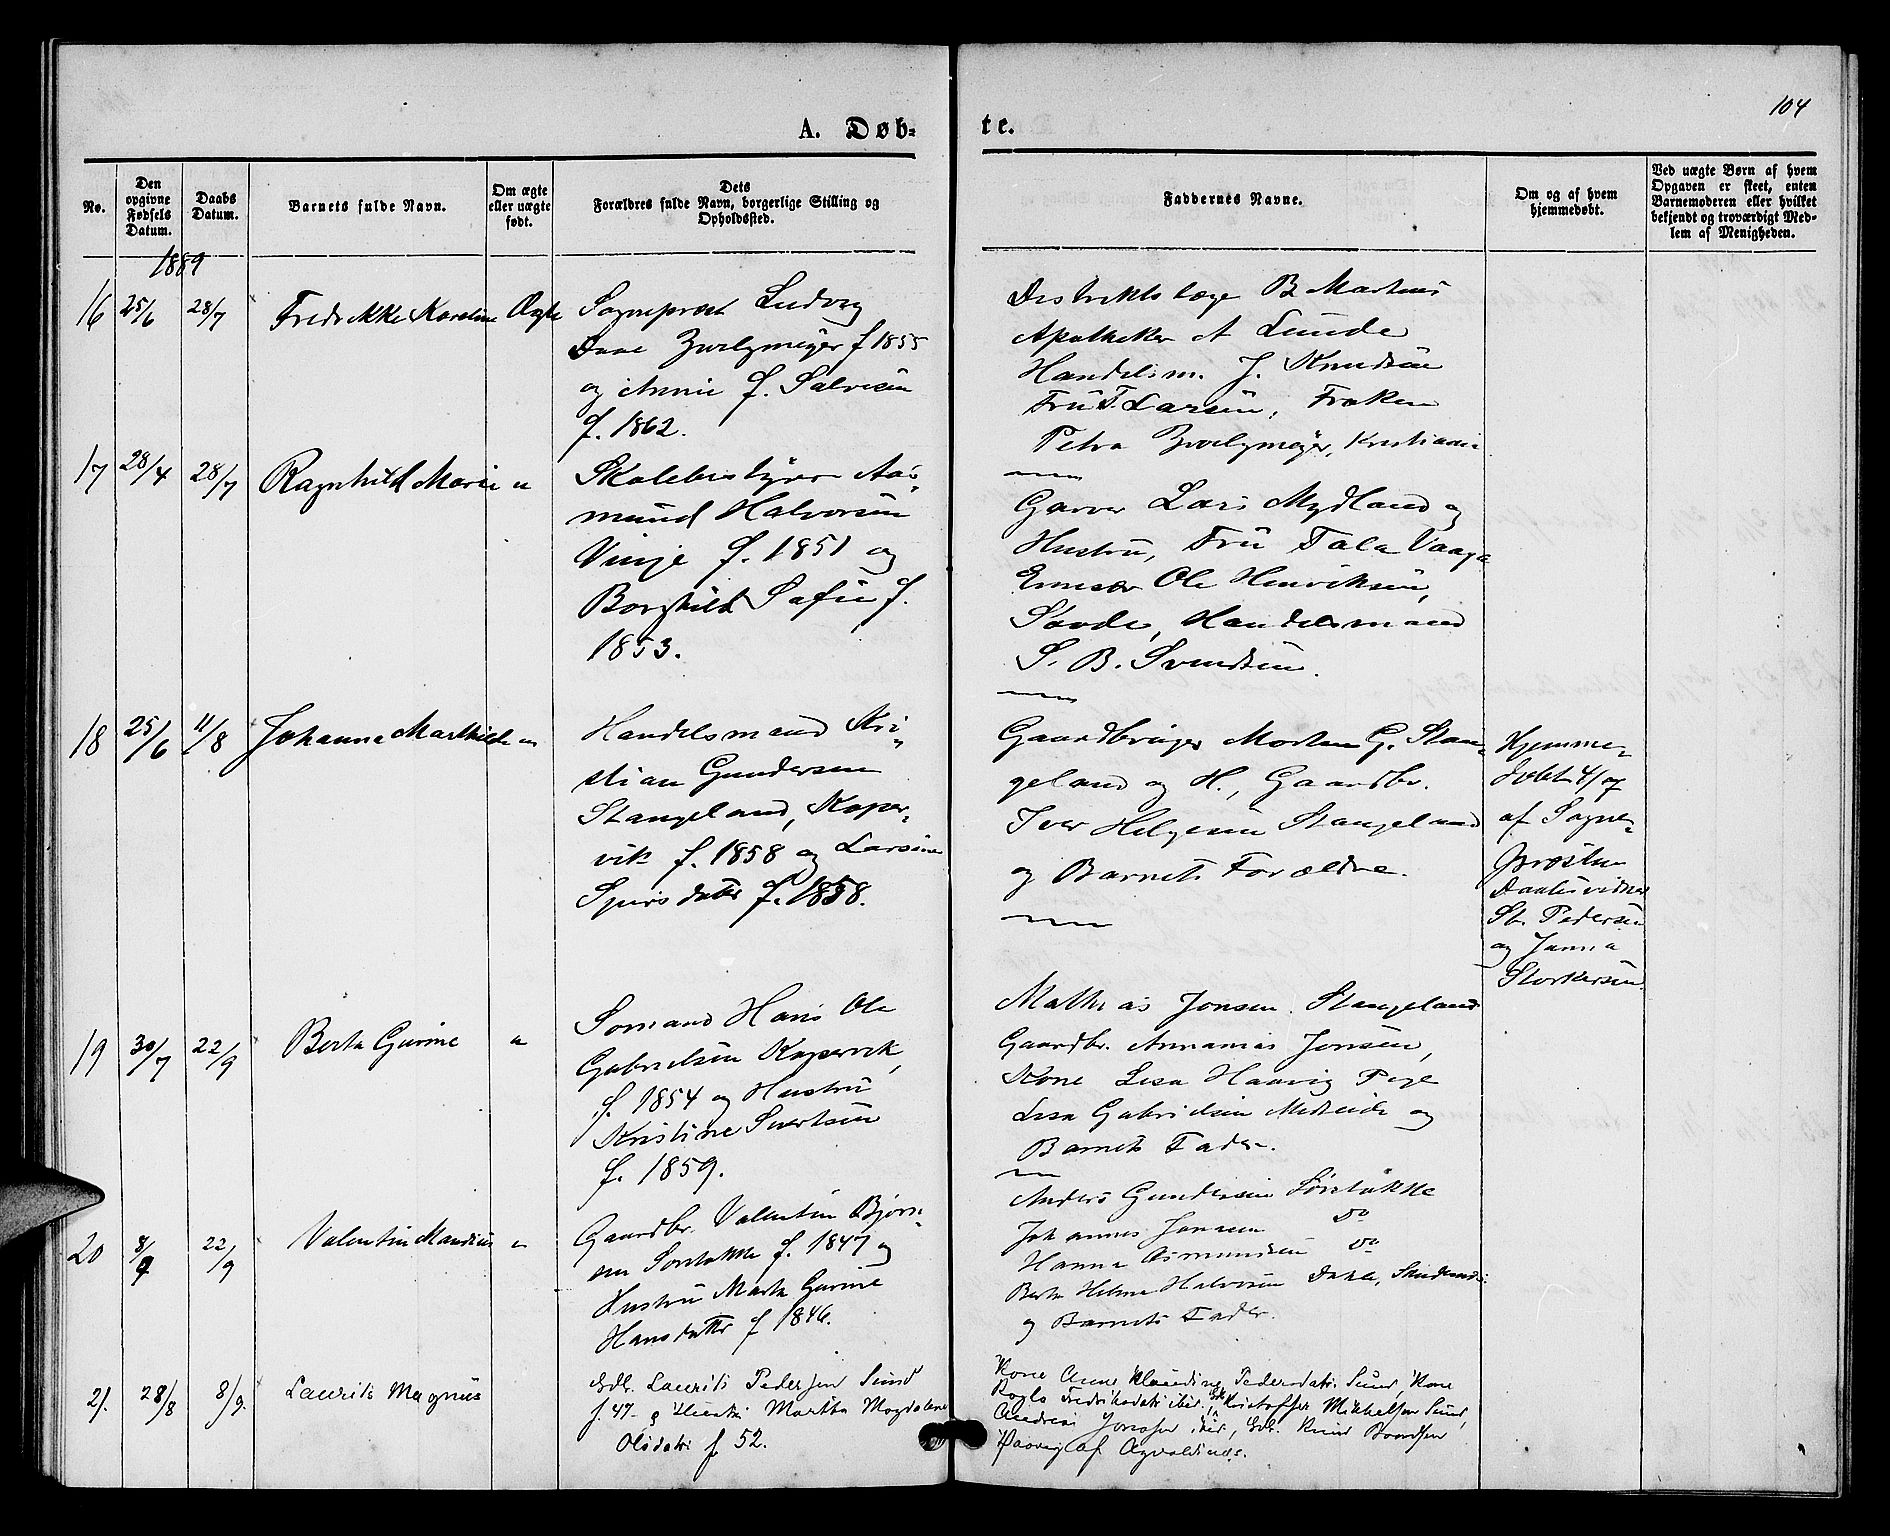 104
A. Døb-
te.
No.
Den
opgivne
Fødsels
Datum.
Daabs
Datum.
Barnets fulde Navn.
Om ægte
eller uægte
født.
Dets
Forældres fulde Navn, borgerlige Stilling og
Opholdssted.
Faddernes Navne.
Om og af hvem
hjemmedøbt.
Ved uægte Børn af hvem
Opgaven er skeet, enten
Barnemoderen eller hvilket
bekjendt og troværdigt Med-
lem af Menigheden.
1889
16 25/6 28/7 Fredrikke Karoline Ægte
Sogneprest Ludvig
Daae Zwilgmeyer f 1855
og Annie f. Salvesen
f. 1862.
Distriktslæge B Martens
Apotheker A Lunde
Handelsm. J. Knudsen
Fru T. Larsen, Frøken
Petra Zwilgmeyer, Kristiania
17 28/4 28/7 Ragnhild Marie "
Skolebestyrer Aa-
mund Halvorsen
Vinje f. 1851 og
Borghild Sofie f.
1853.
Garver Lars Mydland og
Hustru, Fru Tala Vaage
Ole Henriksen,
Stovde, Handelsmand
S. B. Svendsen.
18 25/6 11/8 Johanna Marthilde "
Handelsmand Kri-
stian Gundersen
Stangeland, Koper-
vik f. 1858 og Larsine
Sjursdatter f. 1858.
Gaardbruger Morten G. Stan-
geland og H., Gaardbr.
Iver Helgesen Stangeland
og Barnets Forældre.
Hjemme-
døbt 4/07
af Sogne-
presten
Daabsvidner
St. Pedersen
og Janna
Storkersen.
19 30/7 22/9 Berta Gurine "
Sømand Hans Ole
Gabrielsen Kopervik,
f. 1854 og Hustru
Kristine Sivertsen
f. 1859.
Mathias Jonsen Stangeland
Gaardbr. Annanias Jonsen,
Kone Lisa Haavig Pige
Lisa Gabrielsen Medheide og
Barnets Fader.
20 8/9 22/9 Valentin Mandius "
Gaardbr. Valentin Bjørn-
sen Sørstokke f. 1847 og
Hustru Marta Gurine
Hansdatter f 1846.
Anders Gundersen Sørstokke
Johannes Jansen Do
Hanna Asmundsen Do
Berta Helene Halvorsen Dahle, Skudesnæs
og Barnets Fader.
21. 28/8 8/9. Laurits Magnus
Gdb. Laurits Pedersen Sund
f. 47 - g Hustru Martha Magdalene
Olsdatr f 52.
Kone Anne Klaudine Pedersdatr. Sund, Kone
Fredriksdatr ibid., Kristoffer Mikkelsen Sund,
Andreas Jonasen ibid., Gdb. Knud Baardsen
Haavig af Agvaldsnæs.